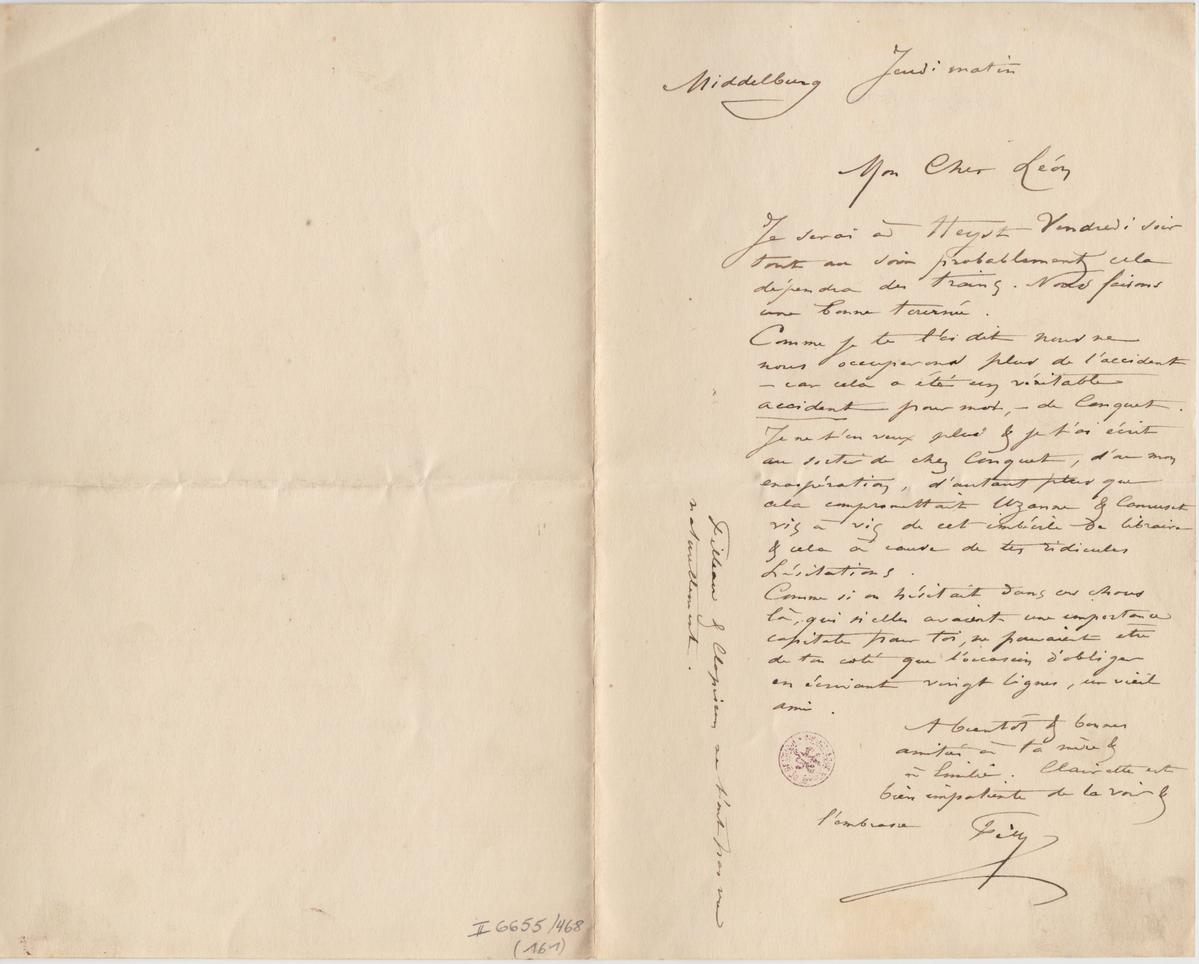 Middelburg Jeudi matin
Mon Cher Léon
Je serai à Heyst Vendredi soir
tout au soir probablement, cela
dépendra des trains. Nous faisons
une bonne tournée.
Comme je te l'ai dit nous ne
nous occuperons plus de l'accident
– car cela a été un véritable
accident pour moi, – de Conquet.
Je ne t'en veux plus & je t'ai écrit
au sortir de chez Conquet, d'où mon
exaspération, d'autant plus que
cela compromettait Uzanne & Camuset
vis à vis de cet imbécile de libraire
& cela à cause de tes ridicules
hésitations.
Comme si on hésitait dans ces choses
là, qui si elles avaient une importance
capitale pour toi, ne pouvaient être
de ton coté que l'occasion d'obliger
en écrivant vingt lignes, un vieil
ami.
A bientôt & bonnes
amitiés à ta mère &
à Emilie. Clairette est
bien impatiente de la voir &
l'embrasse
Fély
Filleau & Clapisson ne t'ont pas vu
naturellement.
II 6655/468
(161)